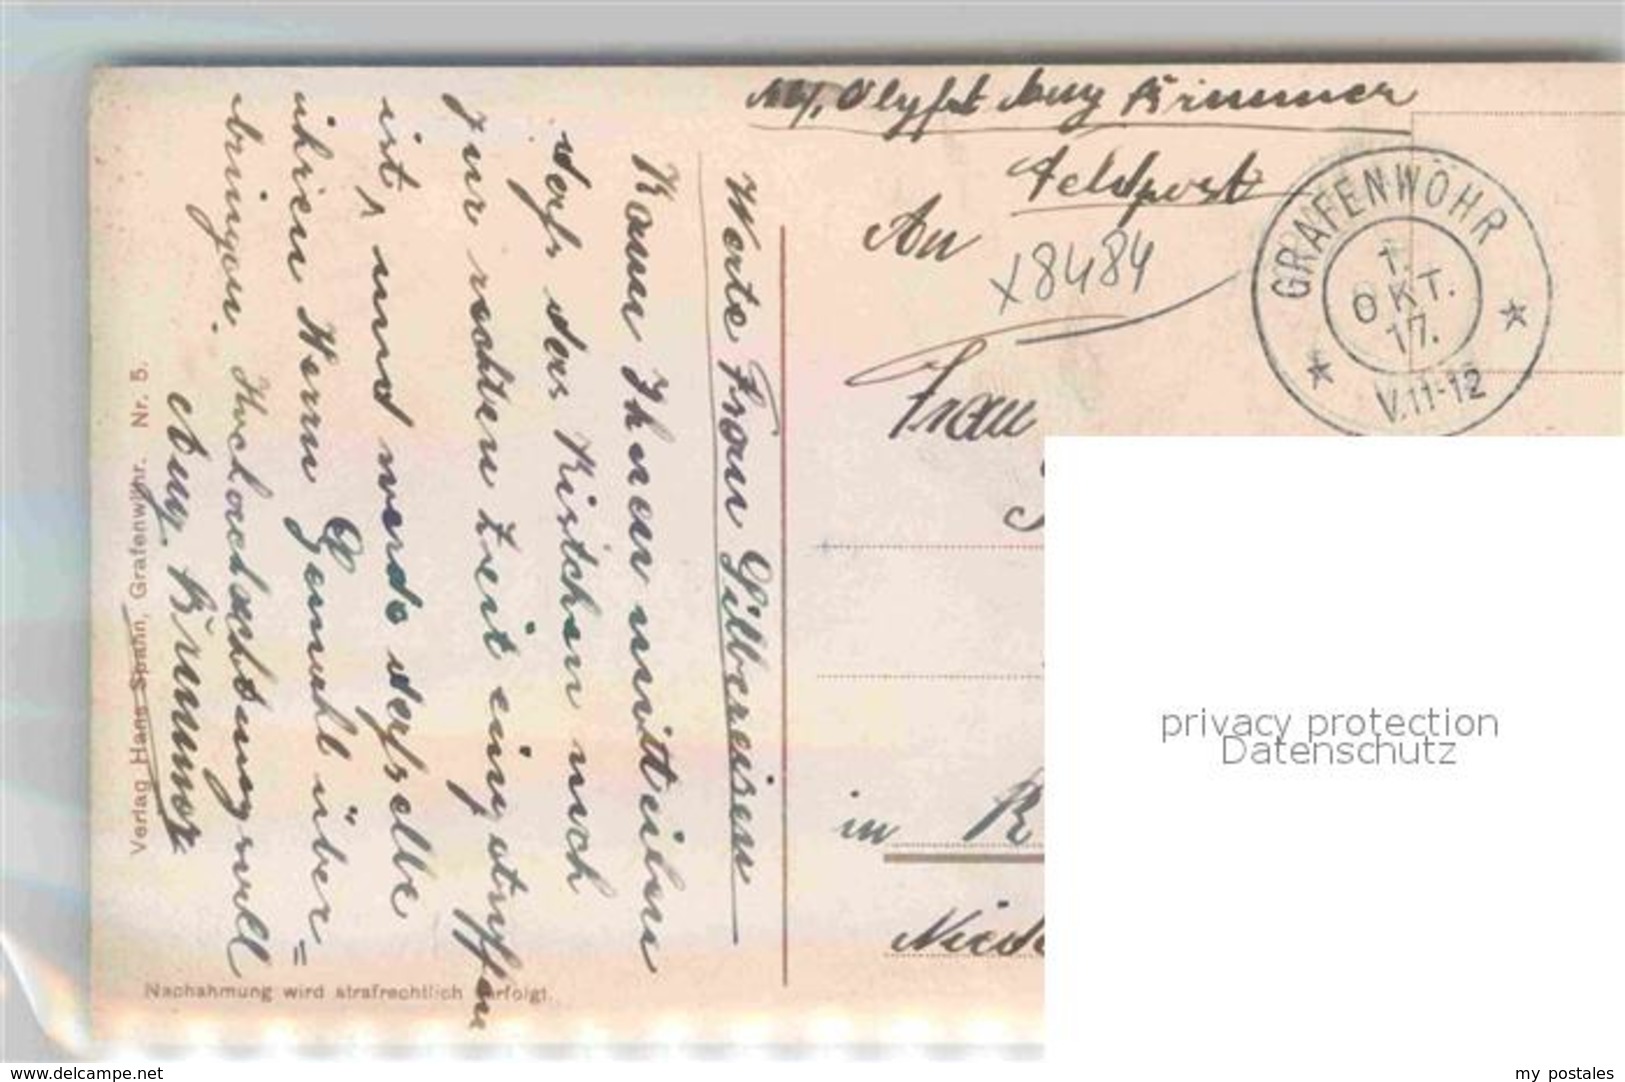 Brummer
Feldpost
An
x8484
Frau
in R
Niede
GRAFENWÖHR
1.
OKT.
17.
V.11-12
Werte Frau Silbereisen
Kann Ihnen mitteilen
dass das Kistchen noch
zur rechten Zeit eingetroffen
ist, und werde dasselbe
ihren Herrn Gemahl über=
bringen. Hochachtungsvoll
Aug. Brummer
Verlag Hans Spahn, Grafenwöhr. Nr. 5.
Nachahmung wird strafrechtlich verfolgt.
privacy protection
Datenschutz
www.delcampe.net
my_postales